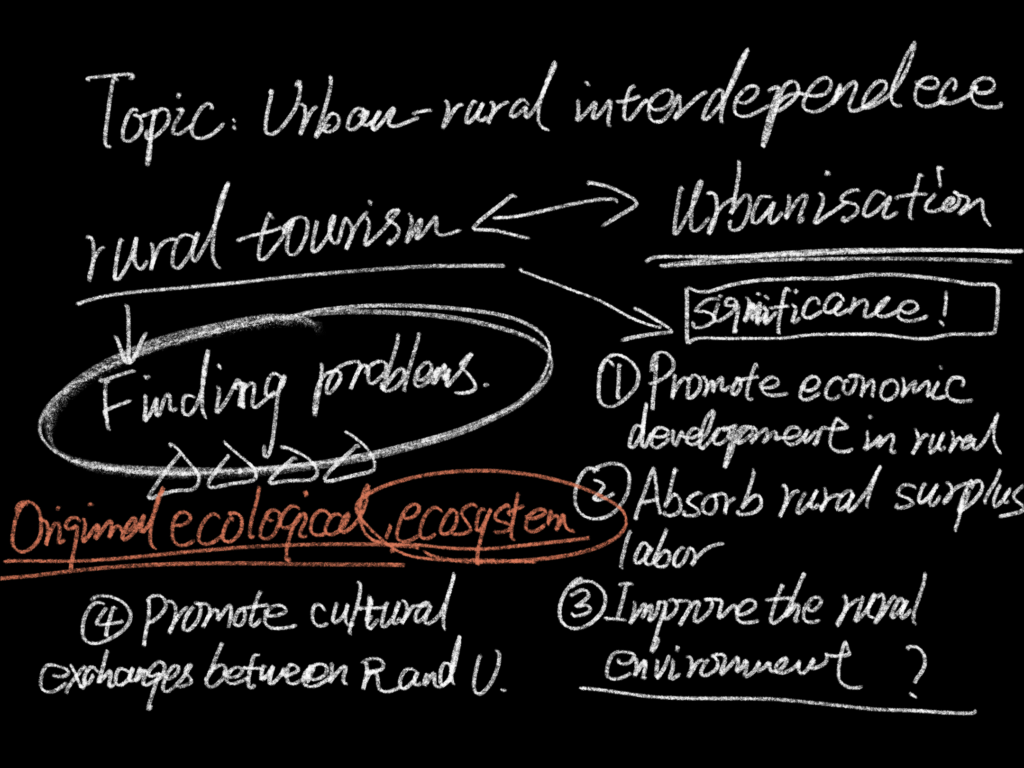 Topic: Urban-rural interdependece
rural tourism
Urbanisation
significance!
Finding problems.
① Promote economic
development in rural
② Absorb rural surplus
labor
Original ecological ecosystem
③ Improve the rural
environment ?
④ Promote cultural
exchanges between R and U.